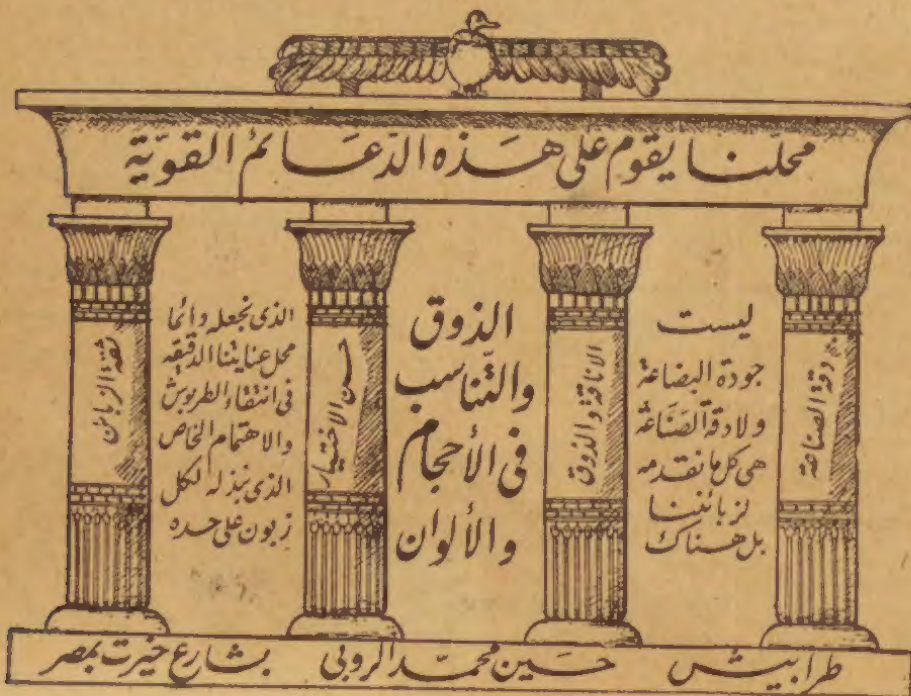 محلنا يقوم على هذه الدعائم القوية
دقة الصناعة
ليست
جودة البضاعة
ولا دقة الصناعة
هى كل ما نقدمه
لزبائننا
بل هناك
الاناقة والذوق
الذوق
والتناسب
فى الأحجام
والألوان
حسن الاختيار
الذى نجعله دائما
محل عنايتنا الدقيقه
فى انتقاء الطربوش
والاهتمام الخاص
الذى نبذله لكل
زبون على حده
ثقة الزبائن
طرابيش حسين محمد الروبى بشارع خيرت بمصر